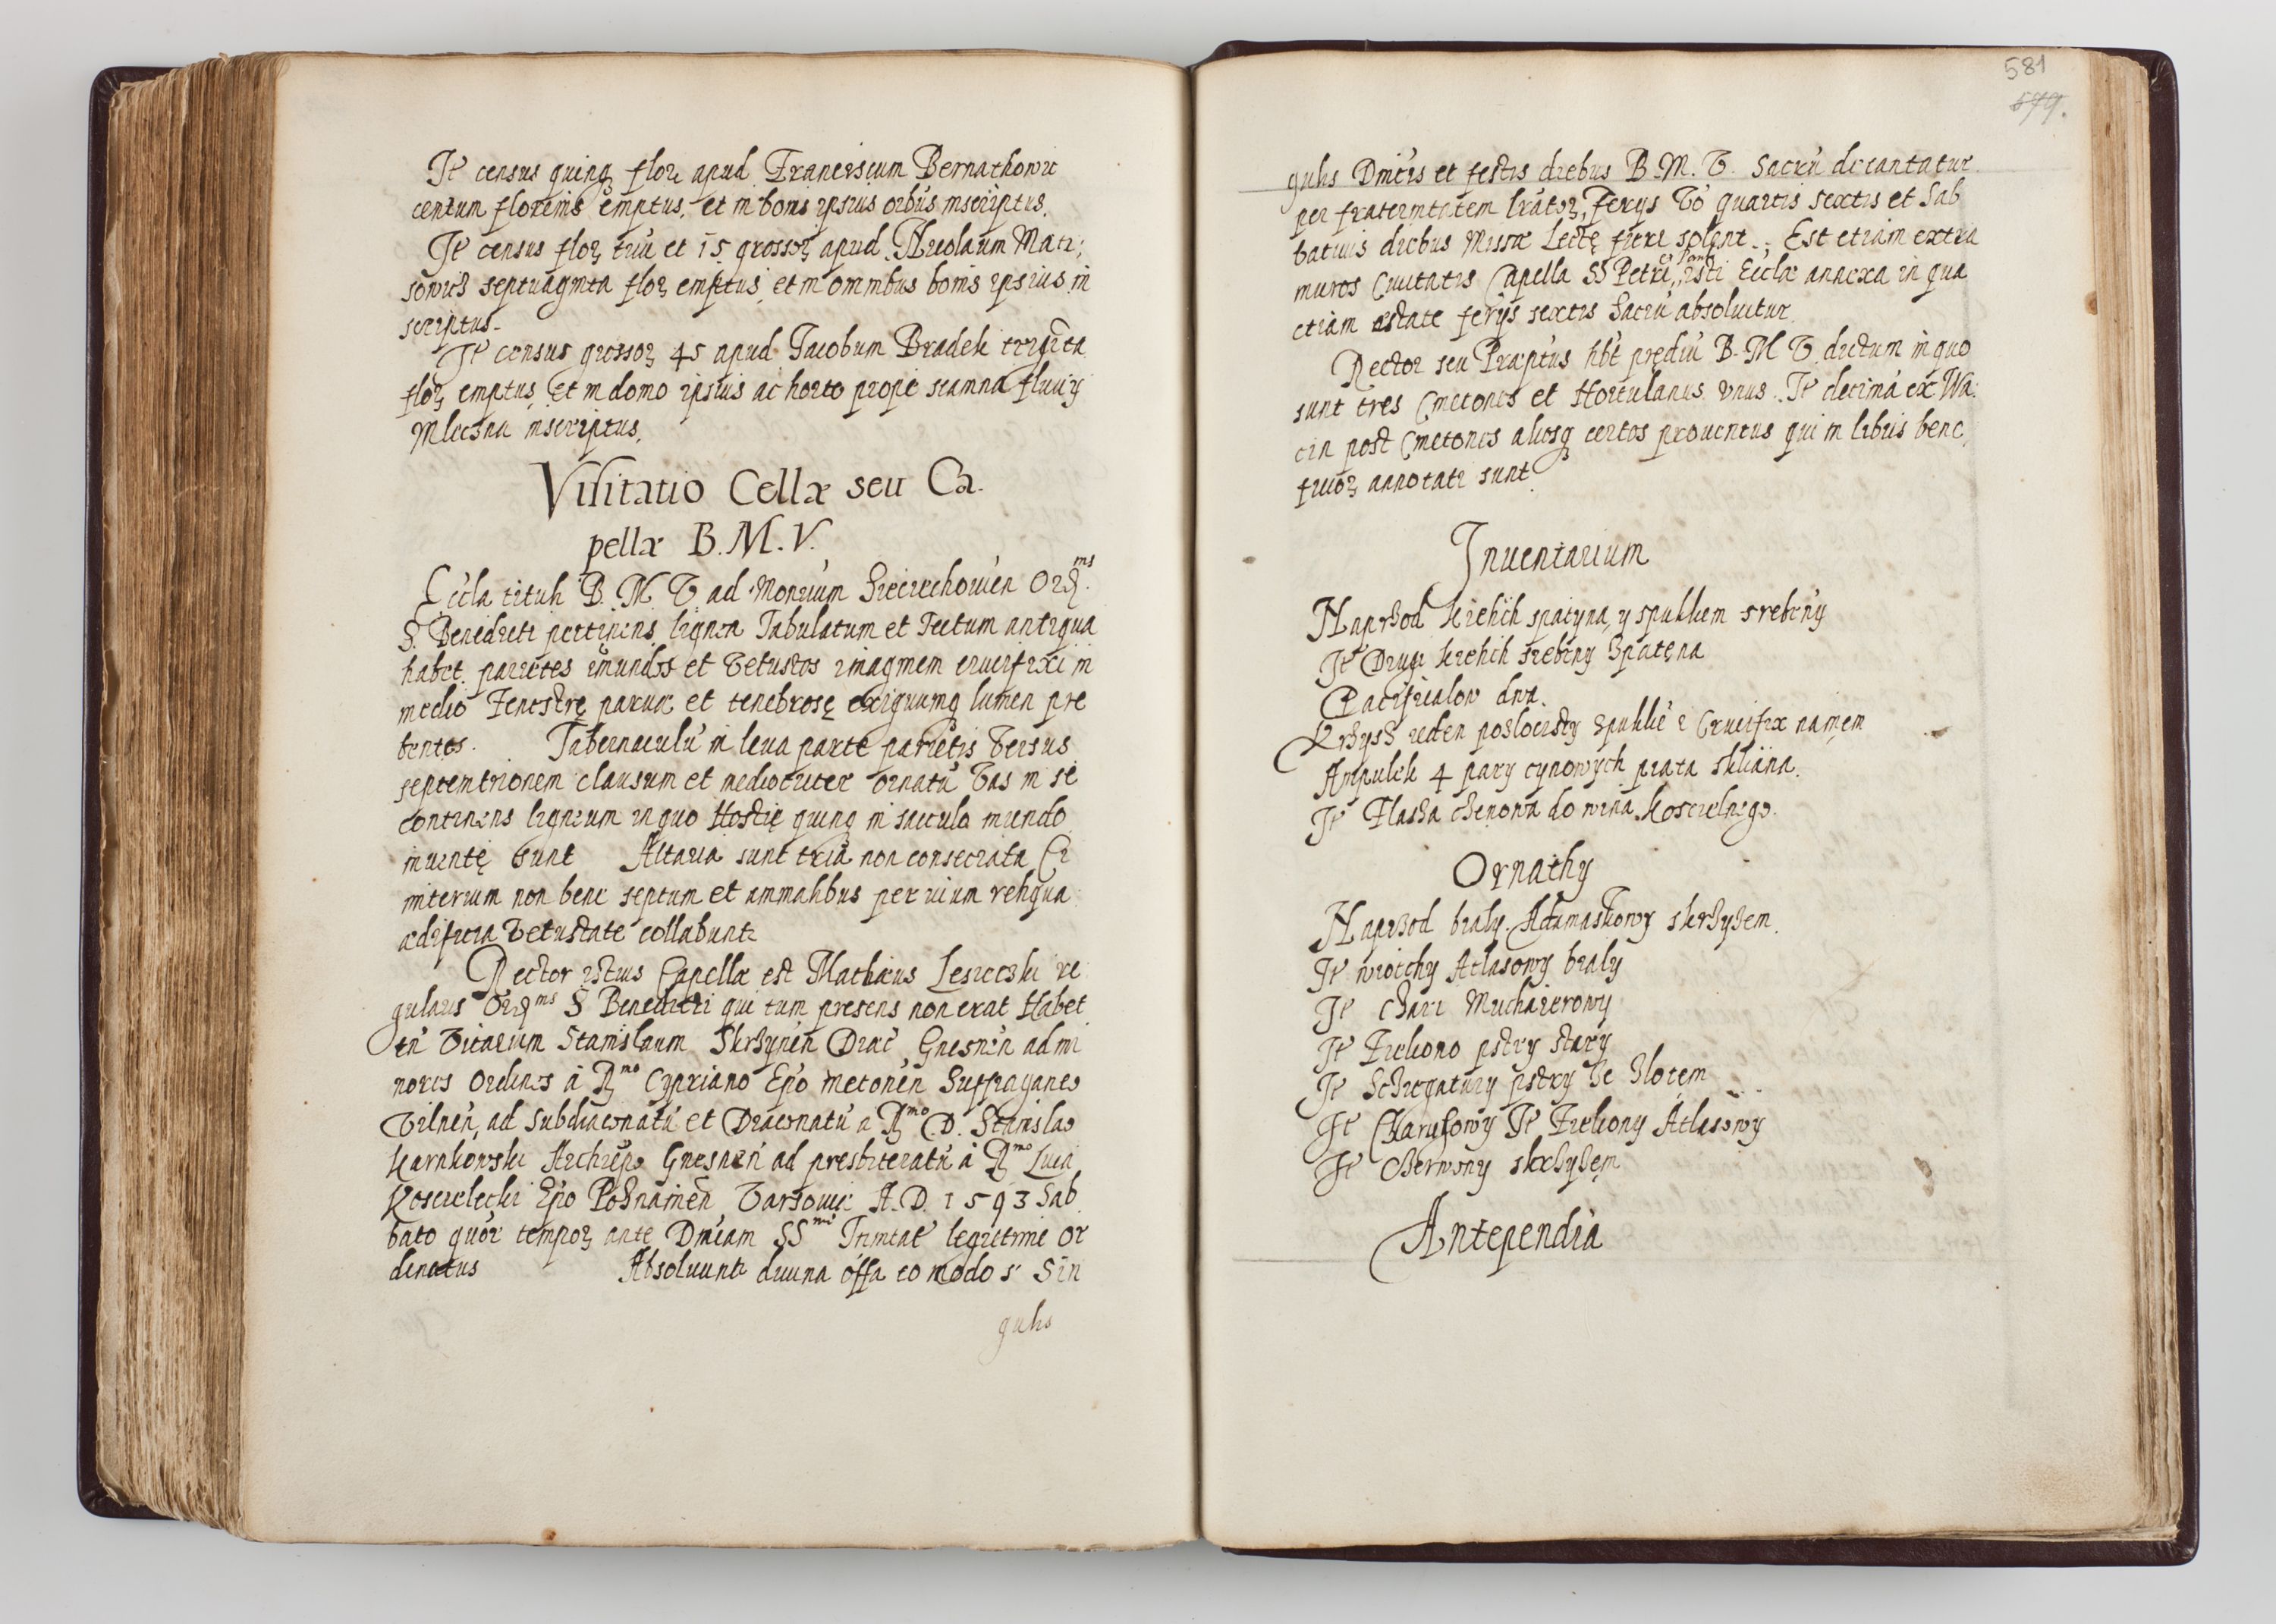 It census quinq flor apud Franciscum Bernathowic
centum florenis emptus, et in bonis ipsius oibus inscriptus.
It census flor triu et 15 grossor apud Nicolaum Mati;
sowicz septuaginta flor emptus et in omnibus bonis ipsius in
scriptus.
It census grossor 45 apud Jacobum Bradek triginta
flor emptus et in domo ipsius ac horto prope scamna fluvij
Mleczna inscriptus.
Visitatio Cellæ seu Ca.
pellæ B. M. V.
Eccla tituli B. M. V. ad Monrium Sieciechovien Ord ms
S. Benedicti pertinens lignea Tabulatum et Tectum antiqua
habet. parietes imundos et vetustos imaginem crucifixi in
medio Fenestrę paruæ et tenebrosę exiguumq lumen pre
bentes. Tabernaculu in leua parte parietis versus
septemtrionem clausum et mediocriter ornatu vas in se
continens ligneum in quo Hostię quinq in sacculo mundo
inuentę sunt Altaria sunt tria non consecrata Ci
miterium non bene septum et animalibus peruium reliqua
ædificia vetustate collabunt
Rector istius Capellæ est Mathæus Lesiecski re
gularis Ord ms S Benedicti qui tum presens non erat Habet
tn vicarium Stanislaum Skrzynen Diac Gnesnen ad mi
nores ordines à R mo Cypriano Epo Metonen Suffraganeo
Vilnen, ad Subdiaconatu et Diaconatu a R mo D. Stanislao
Karnkowski Archiepo Gnesnen ad presbiteratu à R mo Luca
Koscielecki Epo Posnanien Varsovie A. D. 1593 Sab
bato quor tempor ante Dnicam SS me Trinitat legitime or
dinatus Absoluunt diuina offa eo modo s Sin
gulis
581
579.
gulis Dnicis et festis diebus B. M. V. Sacru decantatur.
per fraternitatem lrator, ferijs vo quartis sextis et Sab
bativis diebus Missæ Lectę fieri solent. Est etiam extra
muros Civitatis Capella SS Petri et Pauli isti Ecclæ annexa in qua
etiam æstate ferijs sextis Sacru absoluitur.
Rector seu Præptus hbt prędiu B. M V. dictum in quo
sunt tres Cmetones et Hortulanus vnus. It decima ex Wa.
cin post Cmetones aliosq certos prouentus qui in libris bene
ficior annotati sunt
Inuentarium
Naprzod kielich spatyną y spuklem srebrny
It Drugi kielich srebrny zpatęną
Pacifikalow dwa.
Krzysz ieden poslocisty zpuklie i Crucifix na niem
Ampulek 4 pary cynowych piata skliana.
It Flasza czenowa do wina koscielnego.
Ornathy
Naprzod bialy Adamaskowy skrzyzem.
It wtoichy Atlasowy bialy
It Czari Muchaierowy
It Fiekono pstry stary
It Schregatury pstry ze zlotem
It Karusowy It Fiekony Atlasowy
It Czerwony skrzyzem
Antependia